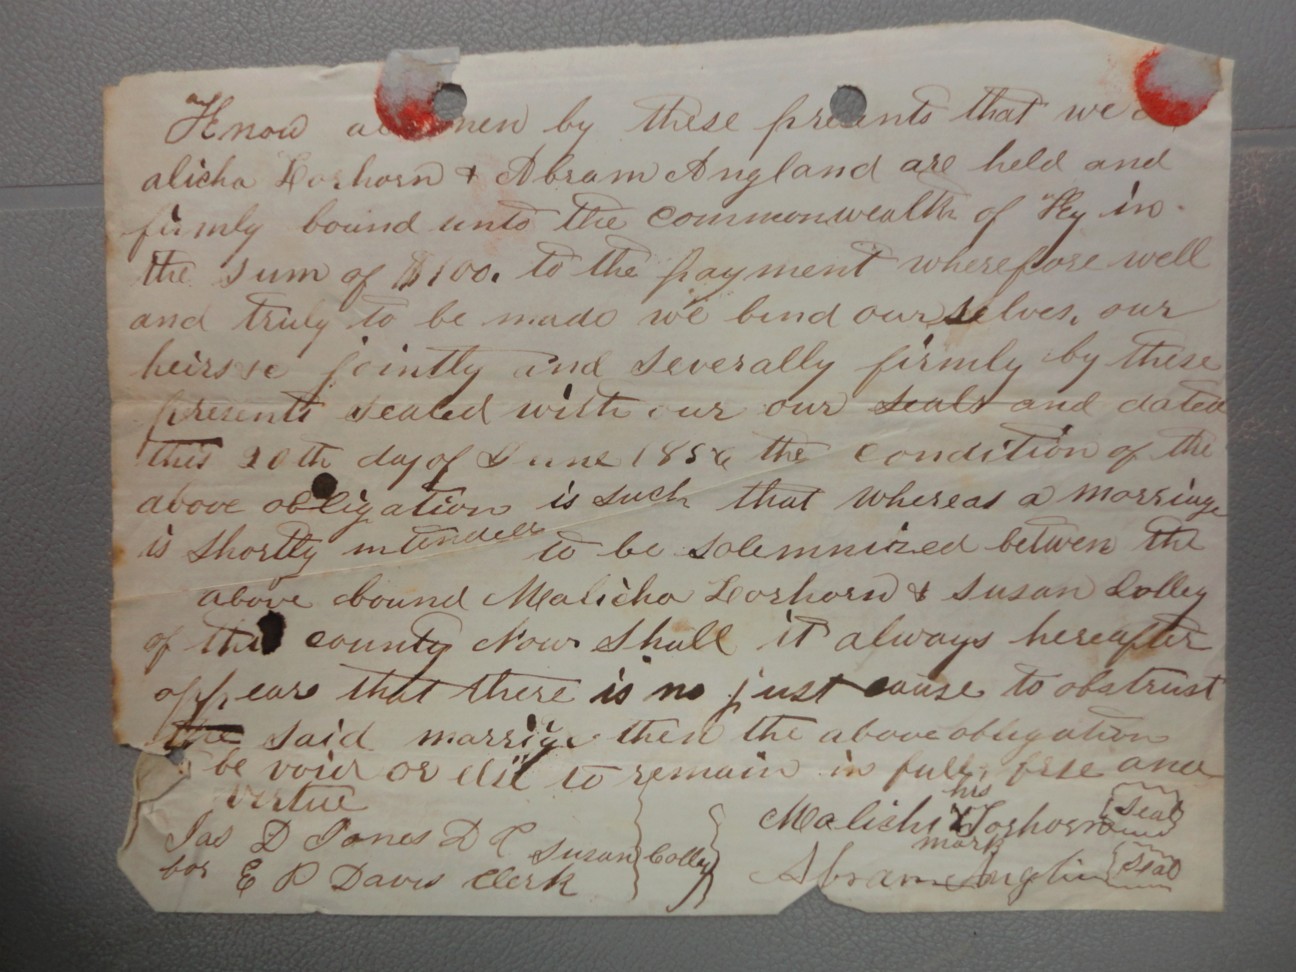 Know al men by these presents that we
alicha Forhorn & Abram Angland are held and
firmly bound unto the commonwealth of Ky in
the sum of $100. to the payment wherefore well
and truly to be made we bind ourselves, our
heirs &c jointly and severally firmly by these
presents sealed with our our seals and dated
this 20th day of June 1856 the condition of the
above obligation is such that whereas a marriage
is shortly intended to be solemnized between the
above bound Malicha Forhorn & Susan Colley
of this county Now shall it always hereafter
appear that there is no just cause to obstrust
the said marrige then the above obligation
be void or else to remain in full, orse and
virtue
his
Malichi X Forhorn Seal
mark
Jas D Jones D C Susan Colley
for E P Davis Clerk
Abram Anglin Seal